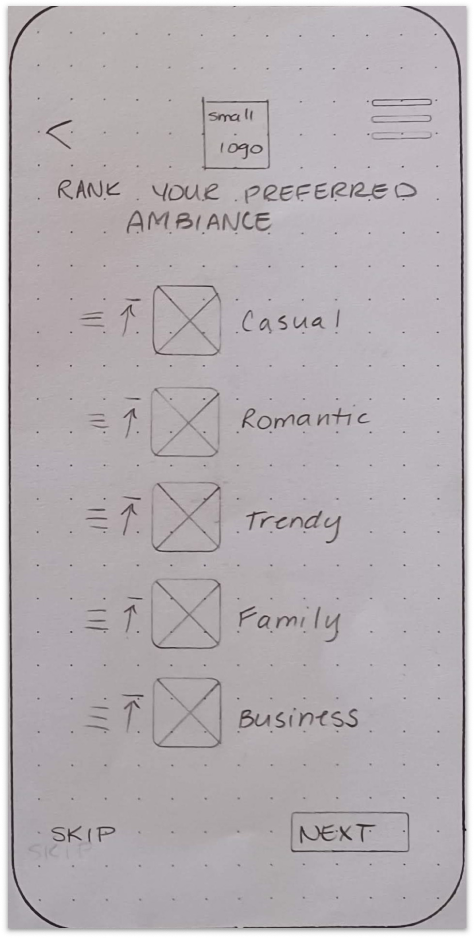 small
logo
RANK YOUR PREFERRED
AMBIANCE
Casual
Romantic
Trendy
Family
Business
SKIP
NEXT
SKIP